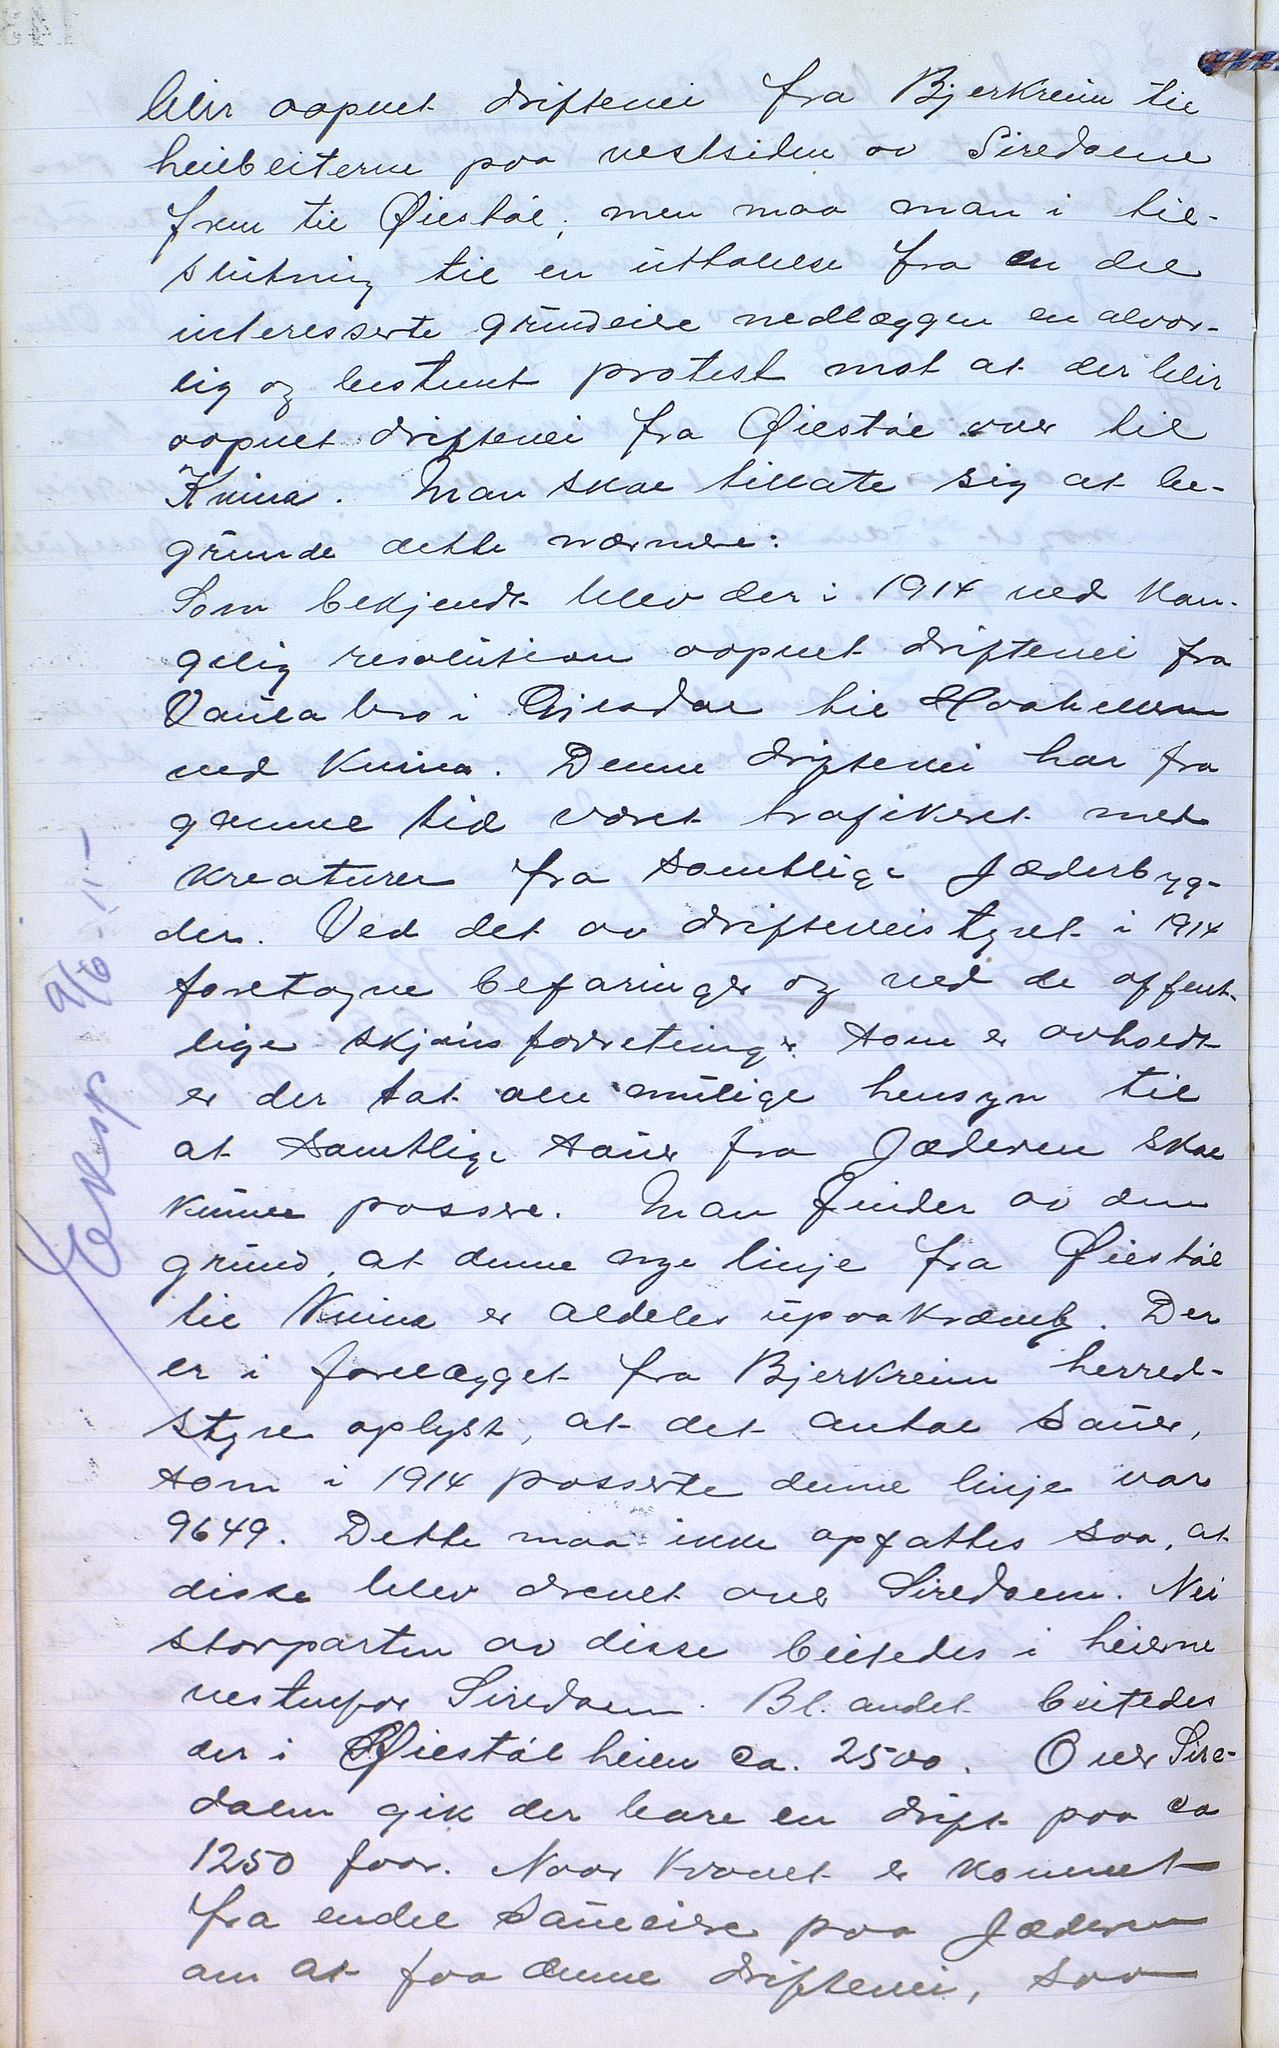 blir aapnet driftevei fra Bjerkreim til
heiebeiterne paa vestsiden av Siredalene
frem til Øiestøl, men maa man i til-
slutning til en uttalelse fra en del
interesserte grundeiere nedlægge en alvor-
lig og bestemt protest mot at der blir
aapnet driftevei fra Øiestøl over til
Kvina. Man skal tillate sig at be-
grunde dette nærmere:
Som bekjendt blev der i 1914 ved Kon-
gelig resolution aapnet driftevei fra
bro i Gjesdal til
ved Kvina. Denne driftevei har fra
gamle tid været trafikert med
kreaturer fra samtlige Jæderbyg-
der. Ved det av drifteveistyret i 1914
foretagne befaringer og ved de offent-
lige skjønsforretninger som er avholdt
er der tat alle mulige hensyn til
at samtlige sauer fra Jæderen skal
kunne passere. Man finder av den
grund, at denne nye linje fra Øiestøl
til Kvina er aldeles upaakrævet. Der
er i forelægget fra Bjerkreim herred-
styre oplyst, at det antal sauer,
som i 1914 passerte denne linje var
9649. Dette maa ikke opfattes saa, at
disse blev drevet over Siredalen. Nei
storparten av disse beitedes i heierne
vestenfor Siredalen. Bl. andet beitedes
der i Øiestøl heien ca. 2500. Over Sire-
dalen gik der bare en drift paa ca
1250 faar. Naar kravet er kommet
fra endel saueeiere paa Jæderen
om at faa denne driftevei, saa
Eksp 9/6-15-
143